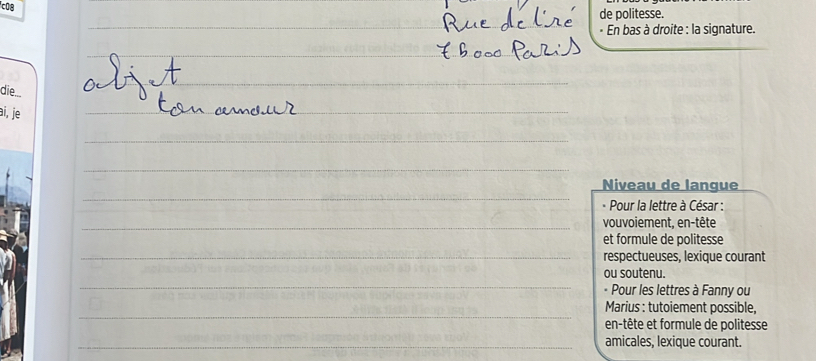 c08
de politesse.
• En bas à droite : la signature.
Rue de liré
75000 Paris
objet
ton amour
die...
ai, je
Niveau de langue
• Pour la lettre à César :
vouvoiement, en-tête
et formule de politesse
respectueuses, lexique courant
ou soutenu.
• Pour les lettres à Fanny ou
Marius : tutoiement possible,
en-tête et formule de politesse
amicales, lexique courant.